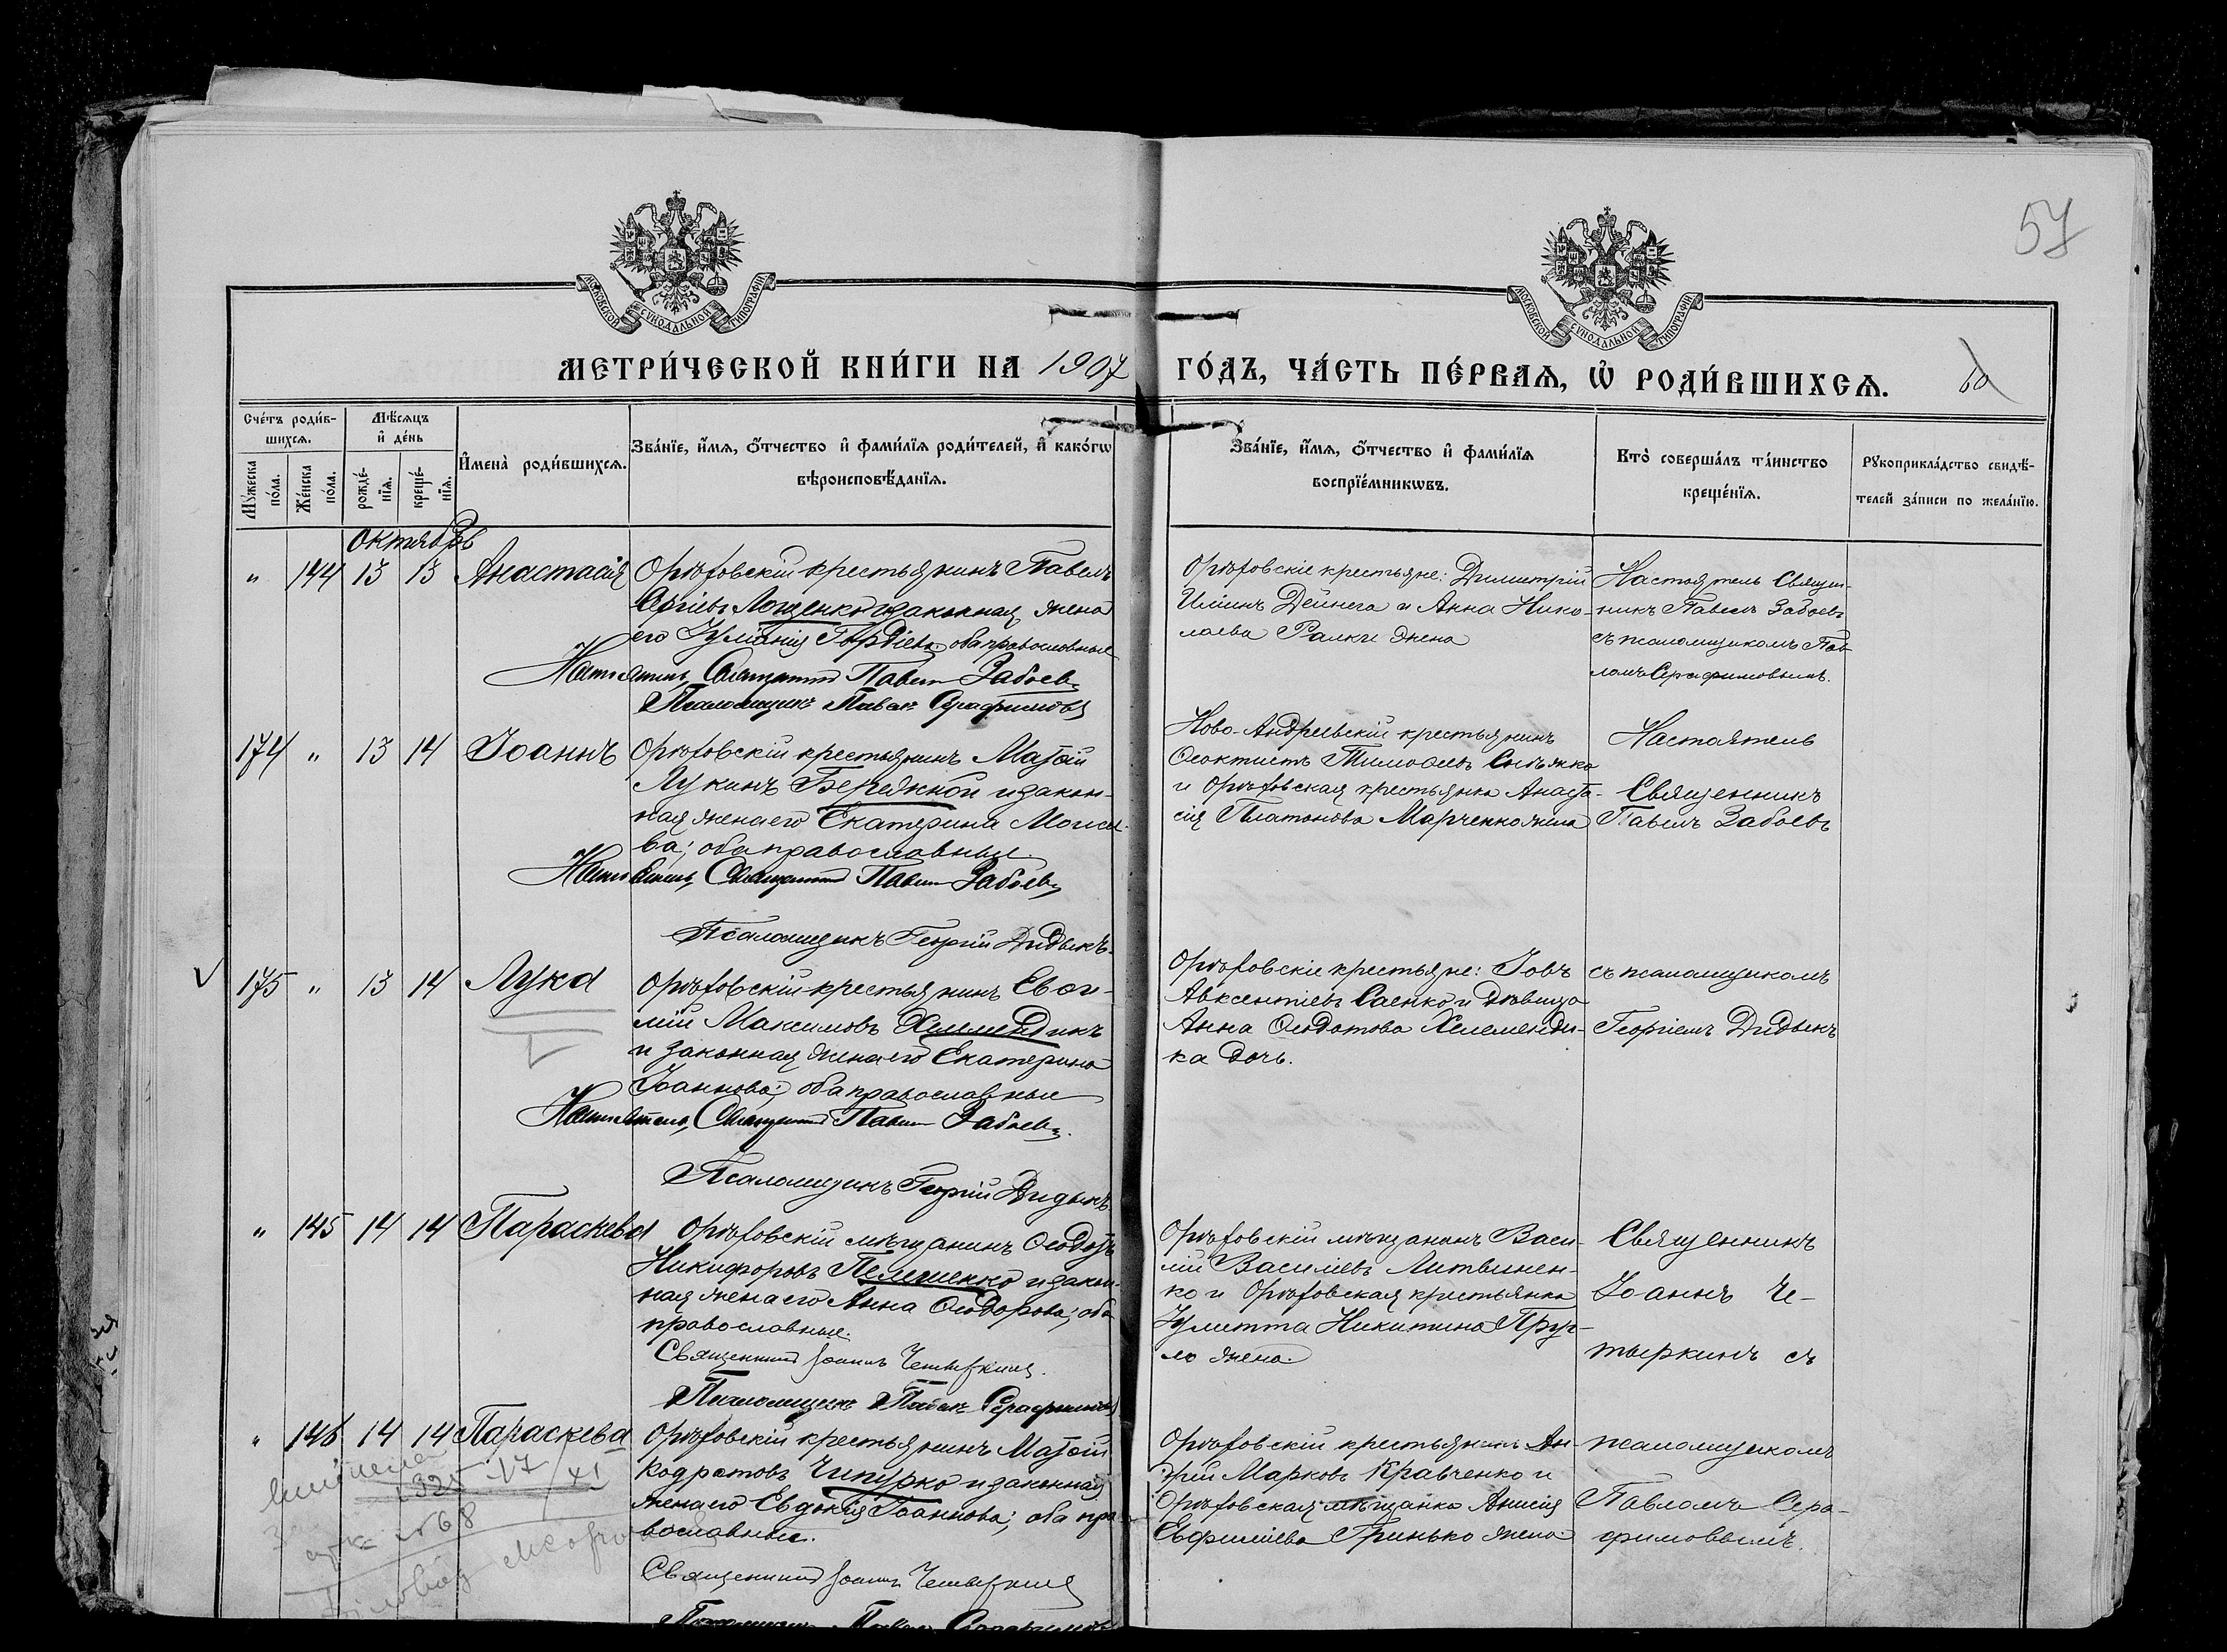 57
МОСКОВСКОЙ СѴНОДАЛЬНОЙ ТИПОГРАФІИ
МОСКОВСКОЙ СѴНОДАЛЬНОЙ ТИПОГРАФІИ
МЕТРИ́ЧЕСКОЙ КНИ́ГИ НА 1907 ГО́ДЪ, ЧА́СТЬ ПЕ́РВАѦ, Ѡ҆ РОДИ́ВШИХСѦ.
60
Сче́тъ роди́в-
шихсѧ.
Мѣ́сѧцъ
и҆ де́нь
Мꙋ́жеска
по́ла.
Же́нска
по́ла.
рожде́-
нїѧ.
креще́-
нїѧ.
И҆мена̀ роди́вшихсѧ.
Зва́нїе, и҆́мѧ, ѻ҆́тчество и҆ фами́лїѧ роди́телей, и҆ како́гѡ
вѣроисповѣ́данїѧ.
Зва́нїе, и҆́мѧ, ѻ҆́тчество и҆ фами́лїѧ
воспрїе́мникѡвъ.
Кто̀ соверша́лъ та́инство
креще́нїѧ.
Рꙋкоприкла́дство свидѣ́-
телей за́писи по жела́нїю.
Октябрь
" 144 13 13 Анастасія
Орѣховскій крестьянинъ Павелъ
законная жена
его Іуліанія Гордіева; оба православные
Настоятель, Священникъ Павелъ Забоевъ
Псаломщикъ Павелъ Серафимовъ
Орѣховскіе крестьяне: Димитрій
Иліинъ Дейнега и Анна Нико-
лаева жена
Настоятель Священ-
никъ Павелъ Забоевъ
съ псаломщикомъ Пав-
ломъ Серафимовымъ.
174 " 13 14 Іоаннъ
Орѣховскій крестьянинъ Матѳій
Лукинъ Бережной и закон-
ная жена его Екатерина Моисе-
ва; оба православные.
Настоятель, Священникъ Павелъ Забоевъ
Псаломщикъ Георгій Дидыкъ
Ново-Андреевскій крестьянинъ
Ѳеоктистъ Тимоѳеевъ
и Орѣховская крестьянка Анаста-
сія Платонова Марченко жена
Настоятель
Священникъ
Павелъ Забоевъ
175 " 13 14 Лука
Орѣховскій крестьянинъ Евѳи-
мій Максимовъ Хелемендикъ
и законная жена его Екатерина
Іоаннова; оба православные
Настоятель, Священникъ Павелъ Забоевъ.
Псаломщикъ Георгій Дидыкъ
Орѣховскіе крестьяне: Іовъ
Авксентіевъ Саенко и дѣвица
Анна Ѳеодотова Хелеменди-
ка дочь.
съ псаломщикомъ
Георгіемъ Дидыкъ
" 145 14 14 Параскева
Орѣховскій мѣщанинъ Ѳеодотъ
Никифоровъ Пелешенко и закон-
ная жена его Анна Ѳеодорова; оба
православные.
Священникъ Іоаннъ Четыркинъ.
Псаломщикъ Павелъ Серафимовъ
Орѣховскій мѣщанинъ Васи-
лій Васильевъ Литвинен-
ко и Орѣховская крестьянка
Іулитта Никитина
жена.
Священникъ
Іоаннъ Че-
тыркинъ съ
" 146 14 14 Параскева
Орѣховскій крестьянинъ Матѳій
Кодратовъ Чипурко и законная
жена его Евдокія Іоаннова; оба пра-
вославные.
Священникъ Іоаннъ Четыркинъ
Псаломщикъ Павелъ Серафимовъ
Орѣховскій крестьянинъ Ан-
дрей Марковъ Кравченко и
Орѣховская мѣщанка Анисія
Евфиміева Гринько жена
псаломщикомъ
Павломъ Сера-
фимовымъ.